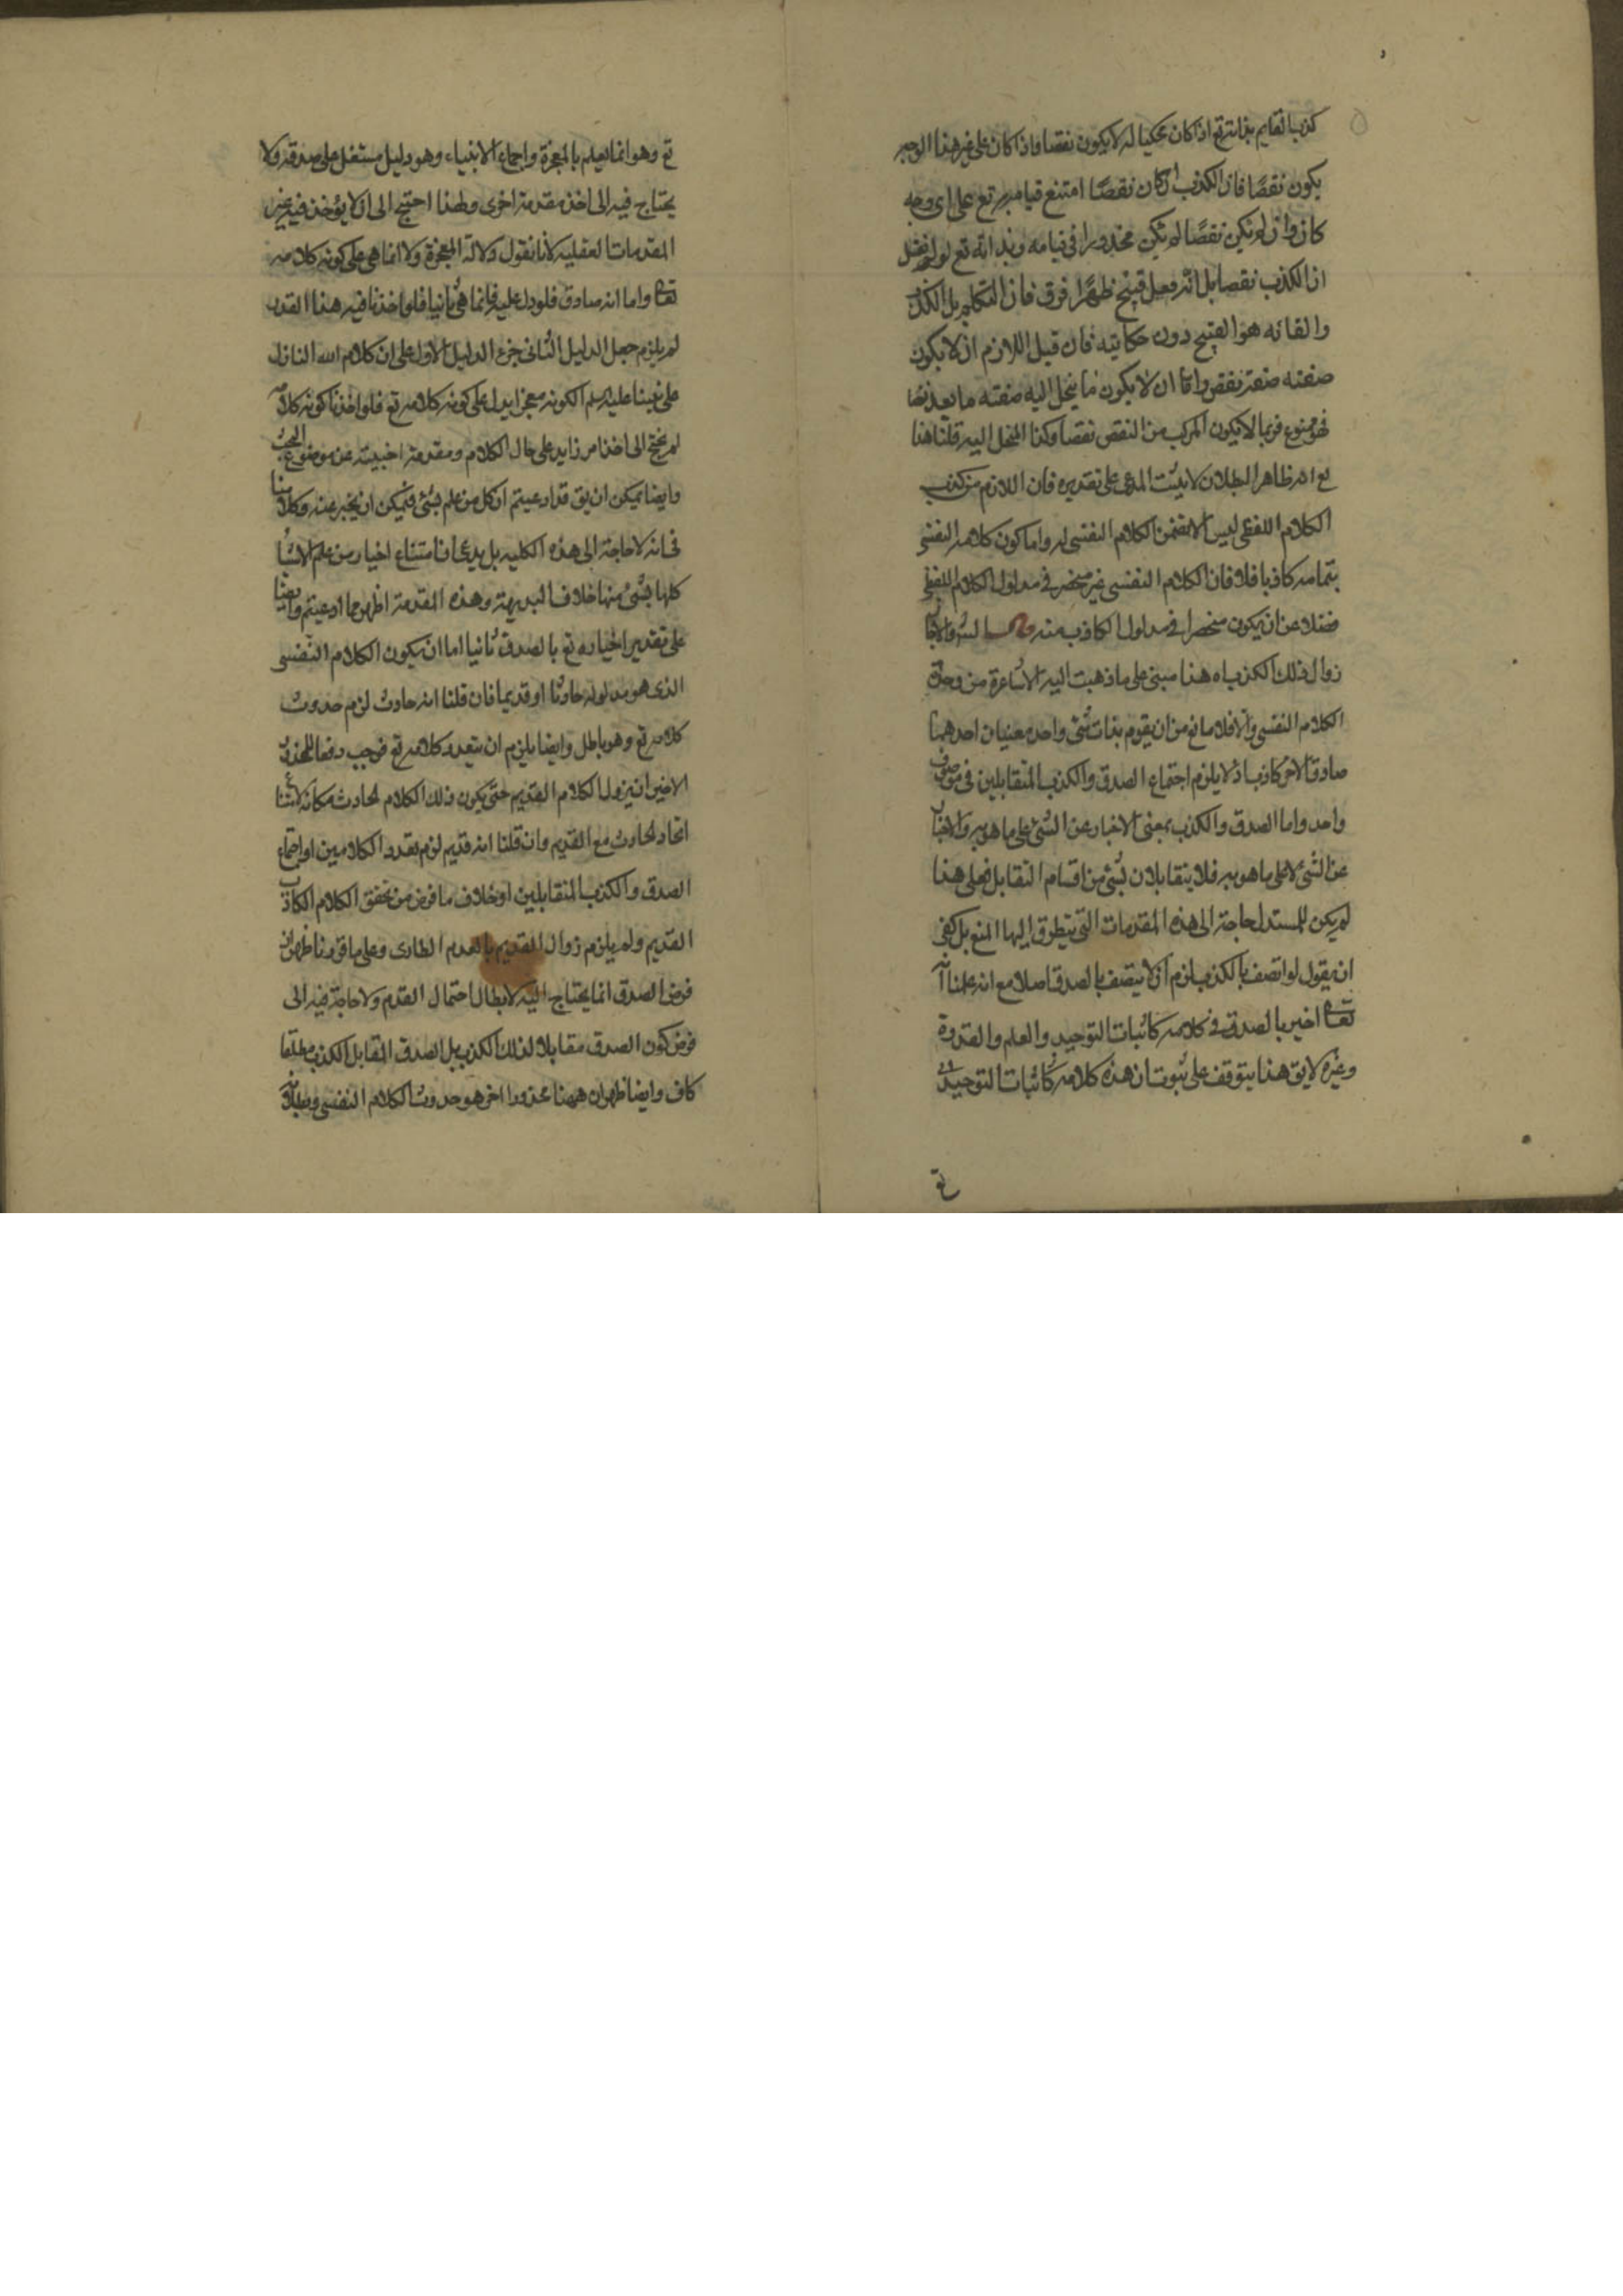 كذب القايم بذاته تع اذا كان محكيا له لا يكون نقصا فاذا كان على غير هذا الوجه
يكون نقصًا فان الكذب ان كان نقصًا امتنع قيامه به تع على اى وجه
كان وان لم يكن نقصًا لم يكن محذورا فى قيامه وبذاته تع لو لم نقل
ان الكذب نقصا بل انه فعل قبيح ظهر الفرق فان التكلم بل الكذب
والقائه هو القبيح دون حكايته فان قيل اللازم ان لا يكون
صفته صفة نقص واما ان لا يكون ما ينحل اليه صفته ما يعد نقصا
فهو ممنوع فربما لا يكون المركب من النقص نقصا وكذا المنحل اليه قلنا هذا
مع انه ظاهر البطلان لا يثبت المدعى على تقديره فان اللازم من كذب
الكلام اللفظى ليس الا تضمن الكلام النفسى له واما كون كلامه النفسى
بتمامه كاذبا فلا فان الكلام النفسى غير منحصر فى مدلول الكلام اللفظى
فضلا عن ان يكون منحصرا فى مدلول الكاذب منه
زوال ذلك الكذب اه هذا مبنى على ما ذهبت اليه الاشاعرة من وحدة
الكلام النفسى والا فلا مانع من ان يقوم بذات شئ واحد معنيان احدهما
صادق الاخر كاذب اذ لا يلزم اجتماع الصدق والكذب المتقابلين فى موصوف
واحد واما الصدق والكذب بمعنى الاخبار عن الشئ على ما هو به والاخبار
عن الشئ لا على ما هو به فلا يتقابلان بشئ من اقسام التقابل فعلى هذا
لم يكن للمستدل حاجة الى هذه المقدمات التى يتطرق اليها المنع بل كفى
ان يقول لو اتصف بالكذب لزم ان لا يتصف بالصدق اصلا مع انه علمنا انه
تعالى اخبر بالصدق فى كلامه كاثبات التوحيد والعلم والقدرة
وغيره لا يق هذا يتوقف على ثبوت ان هذه كلامه كاثبات التوحيد
تع
تع وهو انما يعلم بالمعجزة واجماع الانبياء وهو دليل مستقل على صدقه ولا
يحتاج فيه الى اخذ مقدمة اخرى ولهذا احتيج الى ان لا يؤخذ فيه غير
المقدمات العقليه لانا نقول دلالة المعجزة ولا انما هى على كونه كلامه
تعالى واما انه صادق فلو دل عليه فانما هى ثانيا فلو اخذنا فيه هذا القدر
لم يلزم جعل الدليل الثانى جزء الدليل الاول على ان كلام الله النازل
على نبينا عليه السلم لكونه معجزا يدل على كونه كلامه تع فلو اخذنا كونه كلامه
لم يحتج الى اخذ امر زايد على حال الكلام ومقدمة اجنبيته عن موضوع البحث
وايضا يمكن ان يق قد ادعيتم ان كل من علم بشئ فيمكن ان يخبر عنه
فانه لا حاجة الى هذه الكليه بل يدعى ان امتناع اخبار من علم الاشيا
كلها بشئ منها خلاف البديهة وهذه المقدمة اظهر مما ادعيتم وايضا
على تقدير اخباره تع بالصدق ثانيا اما ان يكون الكلام النفسى
الذى هو مدلوله حادثا او قديما فان قلنا انه حادث لزم حدوث
كلامه تع وهو باطل وايضا يلزم ان يتعدد كلامه تع فوجب دفعا للمحذور
الاخير ان يزول الكلام القديم حتى يكون ذلك الكلام الحادث مكانه لامتناع
اتحاد الحادث مع القديم وان قلنا انه قديم لزم تعدد الكلامين او اجتماع
الصدق والكذب المتقابلين او خلاف ما فرض من تحقق الكلام الكاذب
القديم ولم يلزم زوال القديم بالعدم الطارى وعلى ما قررنا ظهر ان
فرض الصدق انما يحتاج اليه لابطال احتمال القدم ولا حاجة فيه الى
فرض كون الصدق مقابلا لذلك الكذب بل الصدق المقابل الكذب مطلقا
كاف وايضا ظهر ان ههنا محذورا اخر هو حدوث الكلام النفسى وبطلانه